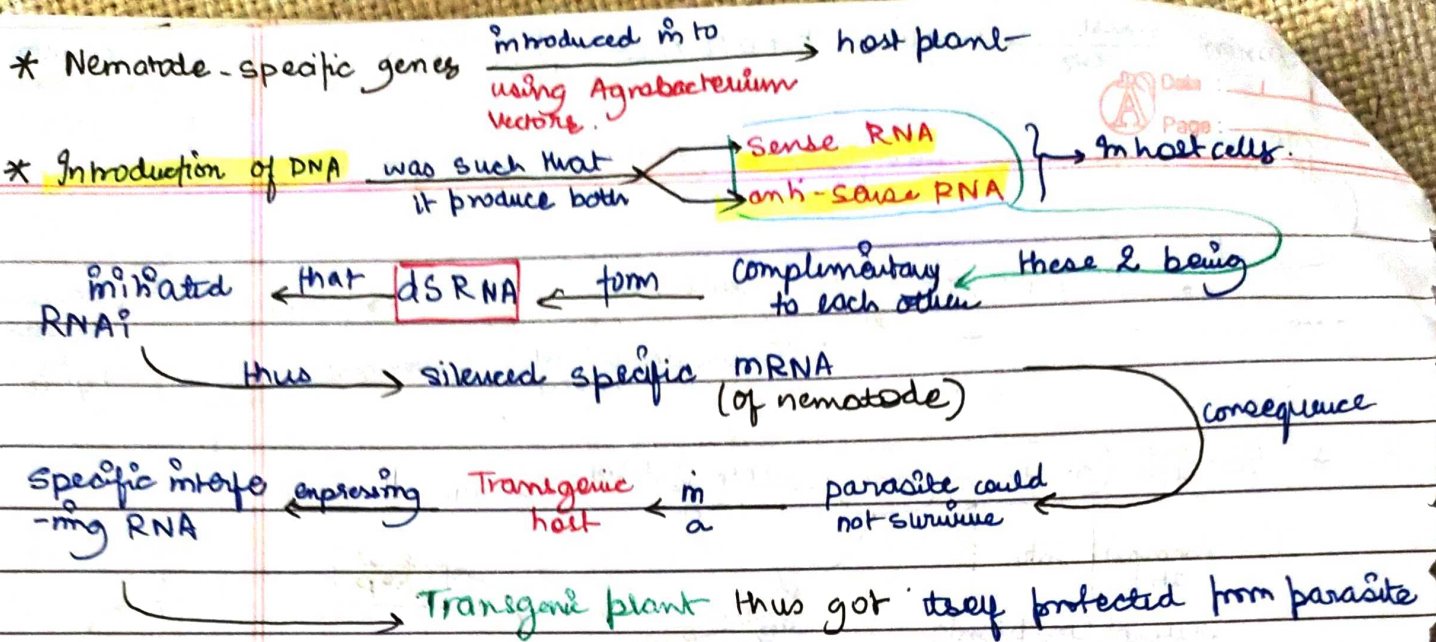 * Nematode-specific genes introduced into host plant
using Agrobacterium
vectors.
Date :
Page :
* Introduction of DNA was such that it produce both sense RNA
anti-sense RNA } In host cells.
these 2 being complimentary to each other form dSRNA that initiated
RNAi
thus silenced specific mRNA
(of nematode)
consequence
parasite could not survive in a Transgenic host expressing specific interfe
-ring RNA
Transgenic plant thus got itself protected from parasite